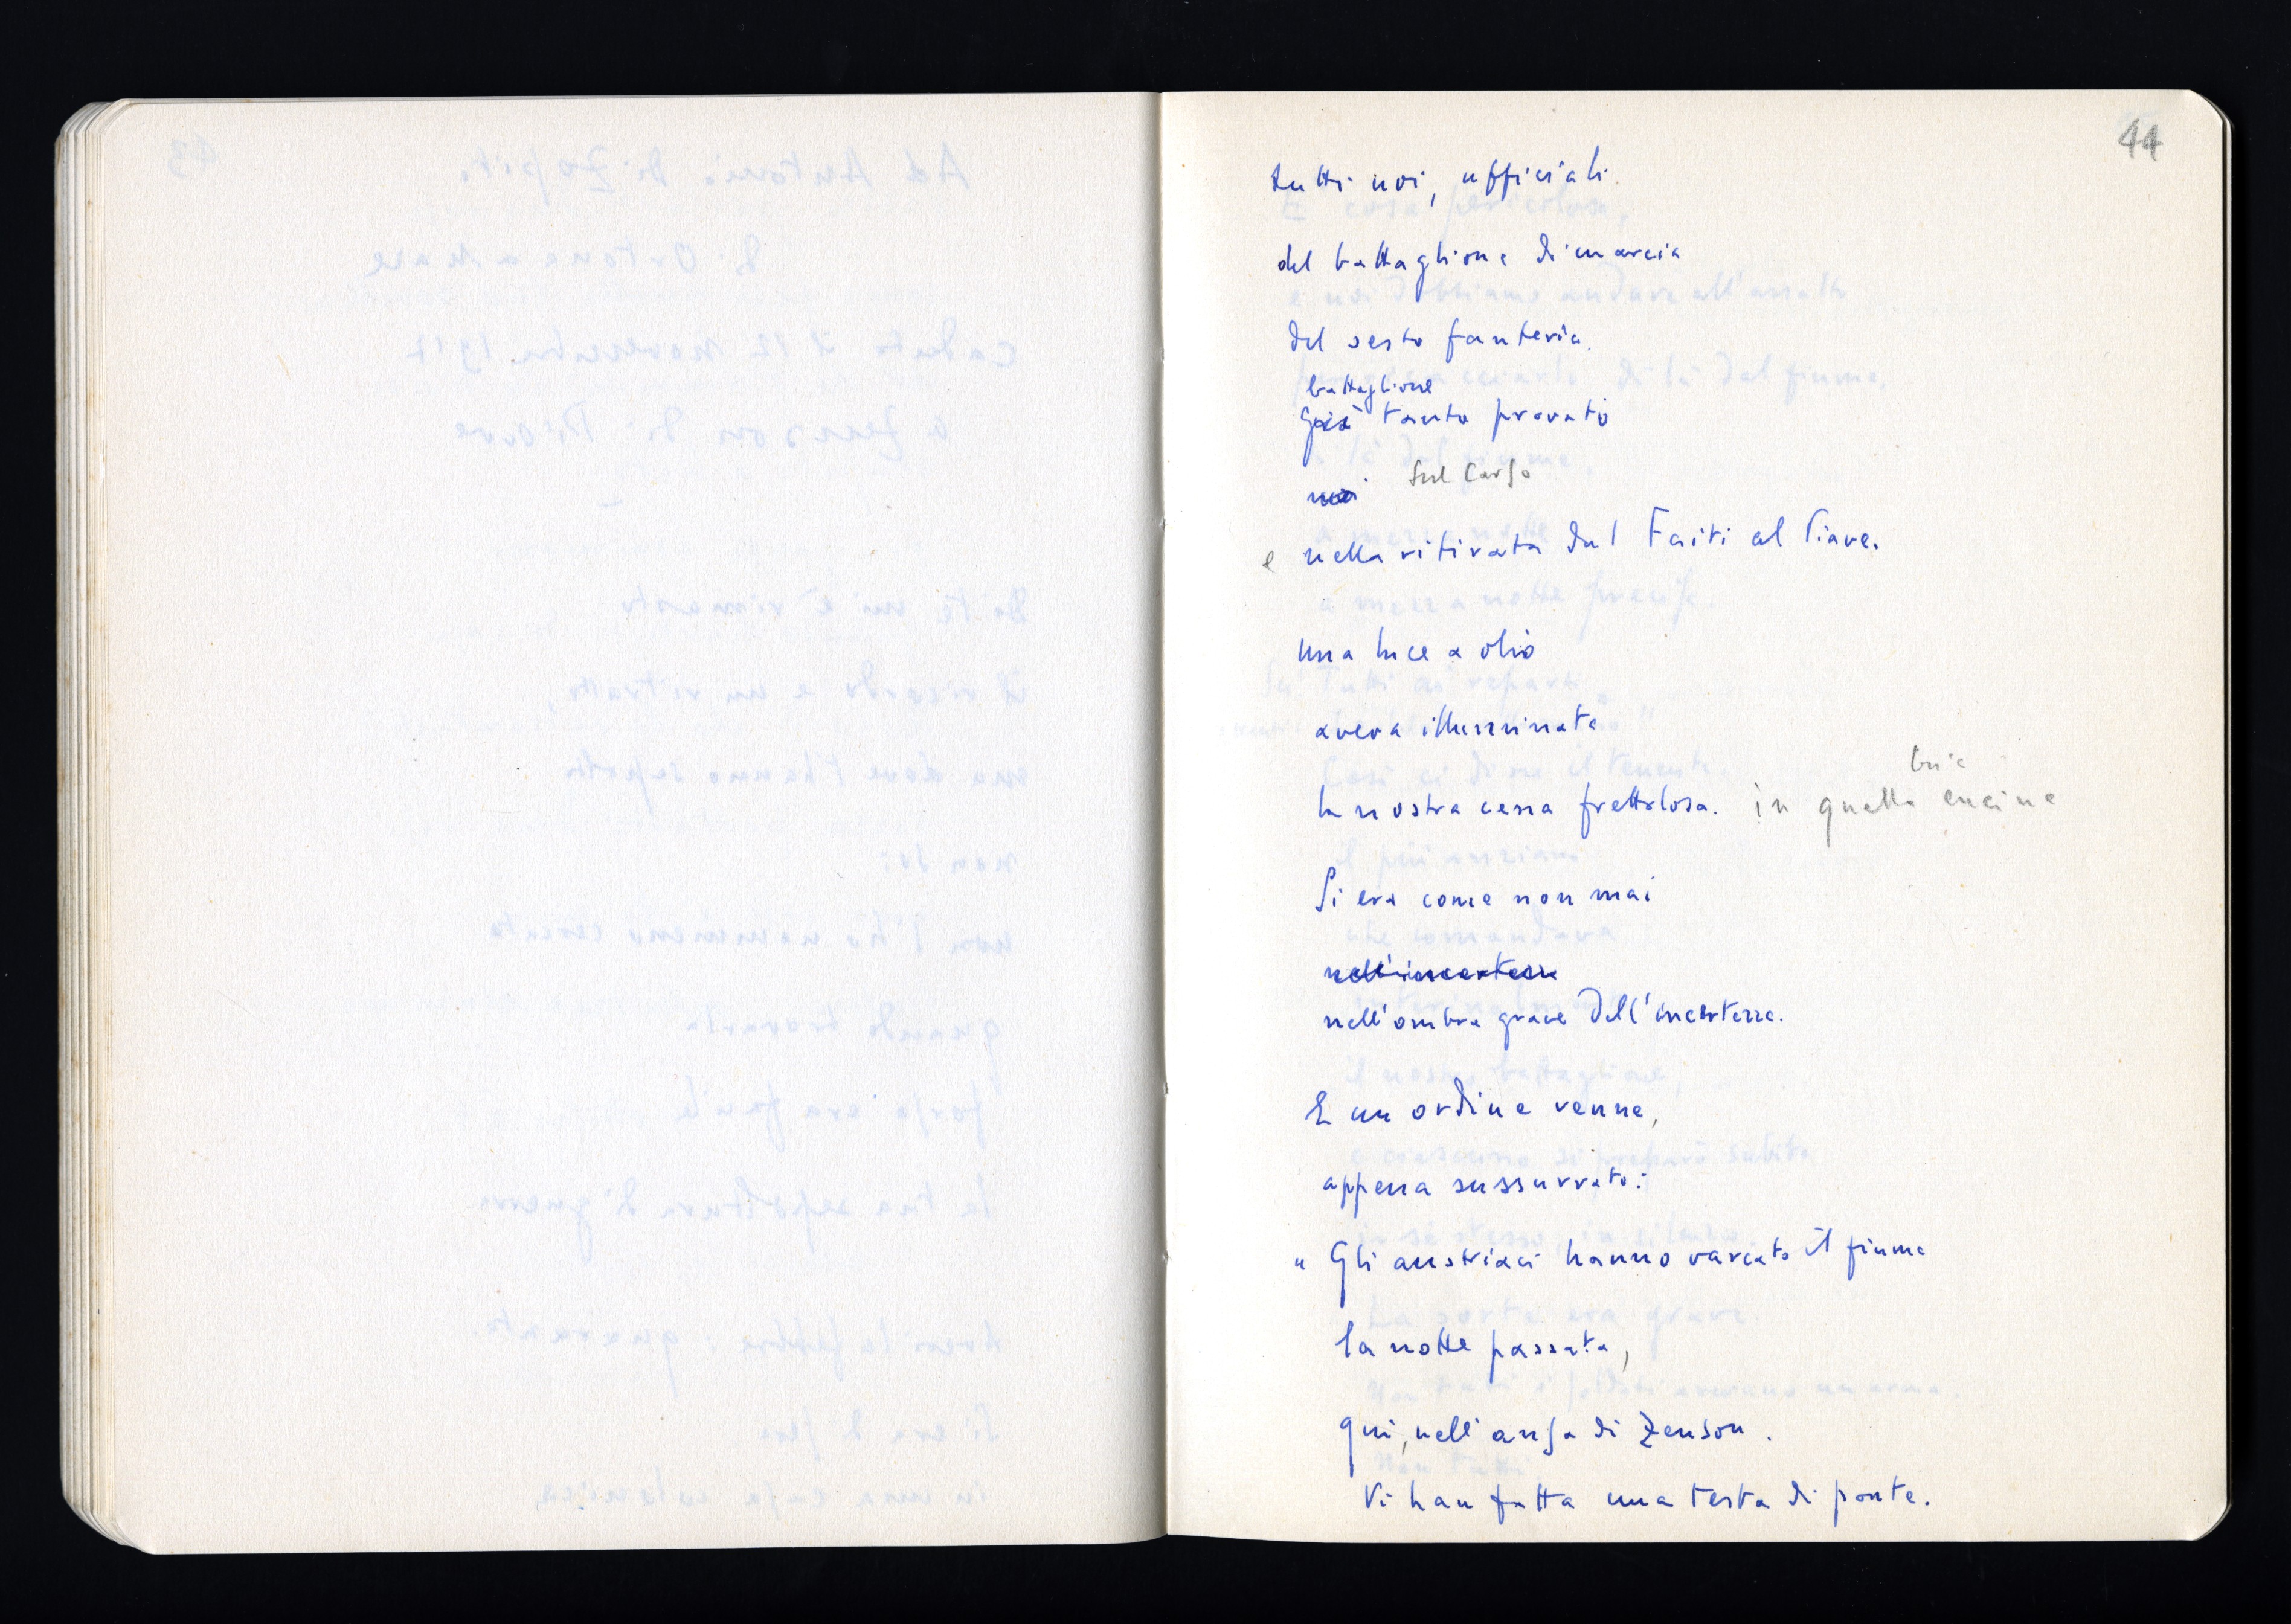 44
tutti noi, ufficiali
del battaglione di marcia
del sesto fanteria.
battaglione
già tanto provato
noi sul Carso
e nella ritirata dal Faiti al Piave.
una luce a olio
aveva illuminata
buia
la nostra cena frettolosa. in quella cucina
Si era come non mai
nell'incertezza
nell'ombra grave dell'incertezza.
E un ordine venne,
appena sussurrato:
" Gli austriaci hanno varcato il fiume
la notte passata,
qui, nell'ansa di Zenson.
Vi han fatta una testa di ponte.